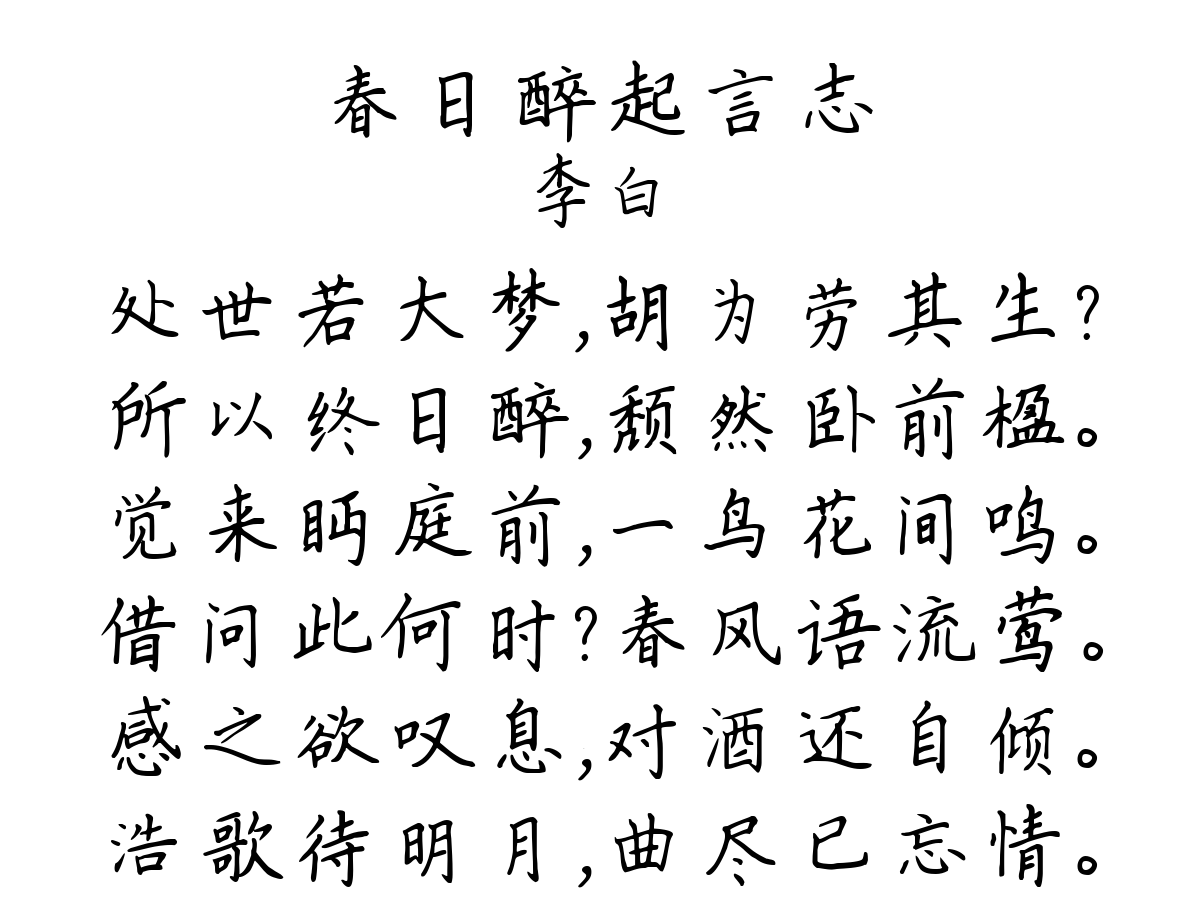 春日醉起言志
李白
处世若大梦,胡为劳其生?
所以终日醉,颓然卧前楹。
觉来眄庭前,一鸟花间鸣。
借问此何时?春风语流莺。
感之欲叹息,对酒还自倾。
浩歌待明月,曲尽已忘情。